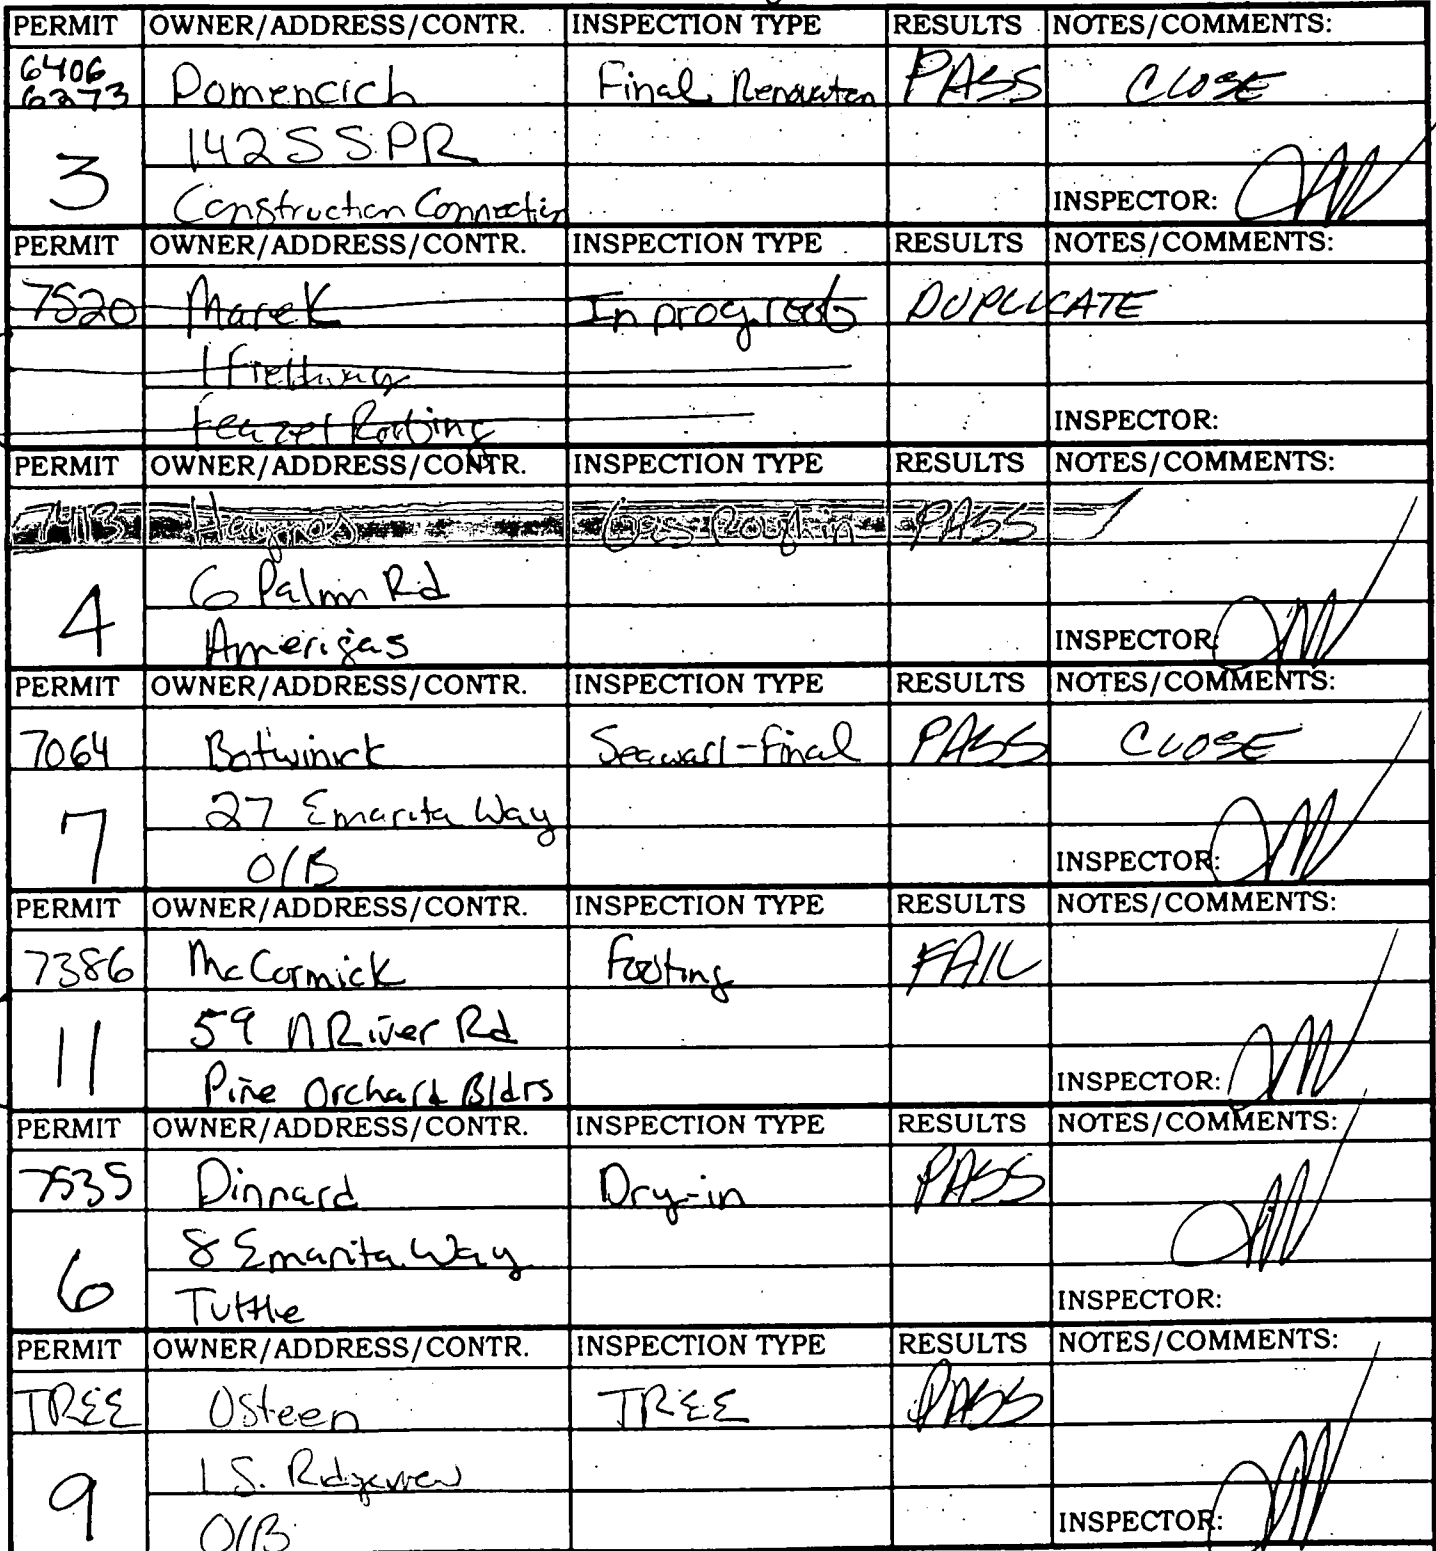 PERMIT OWNER/ADDRESS/CONTR. INSPECTION TYPE RESULTS NOTES/COMMENTS:
6406
6273 Domencich Final Renovation PASS CLOSE
3 142 S SPR
Construction Connection INSPECTOR:
PERMIT OWNER/ADDRESS/CONTR. INSPECTION TYPE RESULTS NOTES/COMMENTS:
7520 Marek In prog. roof DUPLICATE
1
Roofing INSPECTOR:
PERMIT OWNER/ADDRESS/CONTR. INSPECTION TYPE RESULTS NOTES/COMMENTS:
7413 Haynes Gas Rough in PASS
4 6 Palm Rd
Amerigas INSPECTOR:
PERMIT OWNER/ADDRESS/CONTR. INSPECTION TYPE RESULTS NOTES/COMMENTS:
7064 Botwinick Seawall-Final PASS CLOSE
7 27 Emarita Way
O/B INSPECTOR:
PERMIT OWNER/ADDRESS/CONTR. INSPECTION TYPE RESULTS NOTES/COMMENTS:
7386 McCormick footing FAIL
11 59 N River Rd
Pine Orchard Bldrs INSPECTOR:
PERMIT OWNER/ADDRESS/CONTR. INSPECTION TYPE RESULTS NOTES/COMMENTS:
7535 Dinnard Dry-in PASS
6 8 Emarita Way
Tuttle INSPECTOR:
PERMIT OWNER/ADDRESS/CONTR. INSPECTION TYPE RESULTS NOTES/COMMENTS:
TREE Osteen TREE PASS
9 1 S. Ridgeview
O/B INSPECTOR: